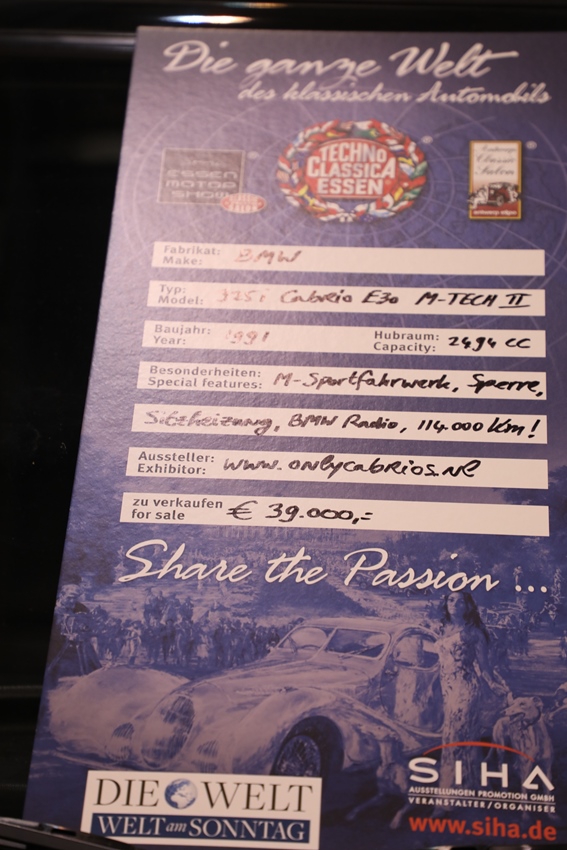 Die ganze Welt
des klassischen Automobils
ESSEN
MOTOR
SHOW
TECHNO
CLASSICA
ESSEN
Classic
Salon
Fabrikat:
Make: BMW
Typ:
Model: 325i Cabrio E30 M-TECH II
Baujahr:
Year: 1991
Hubraum:
Capacity: 2494 CC
Besonderheiten:
Special features: M-Sportfahrwerk, Sperre,
Sitzheizung, BMW Radio, 114.000 Km!
Aussteller:
Exhibitor: www.onlycabrios.nl
zu verkaufen
for sale € 39.000,=
Share the Passion ...
DIE WELT
WELT am SONNTAG
SIHA
AUSSTELLUNGEN PROMOTION GMBH
VERANSTALTER/ORGANISER
www.siha.de